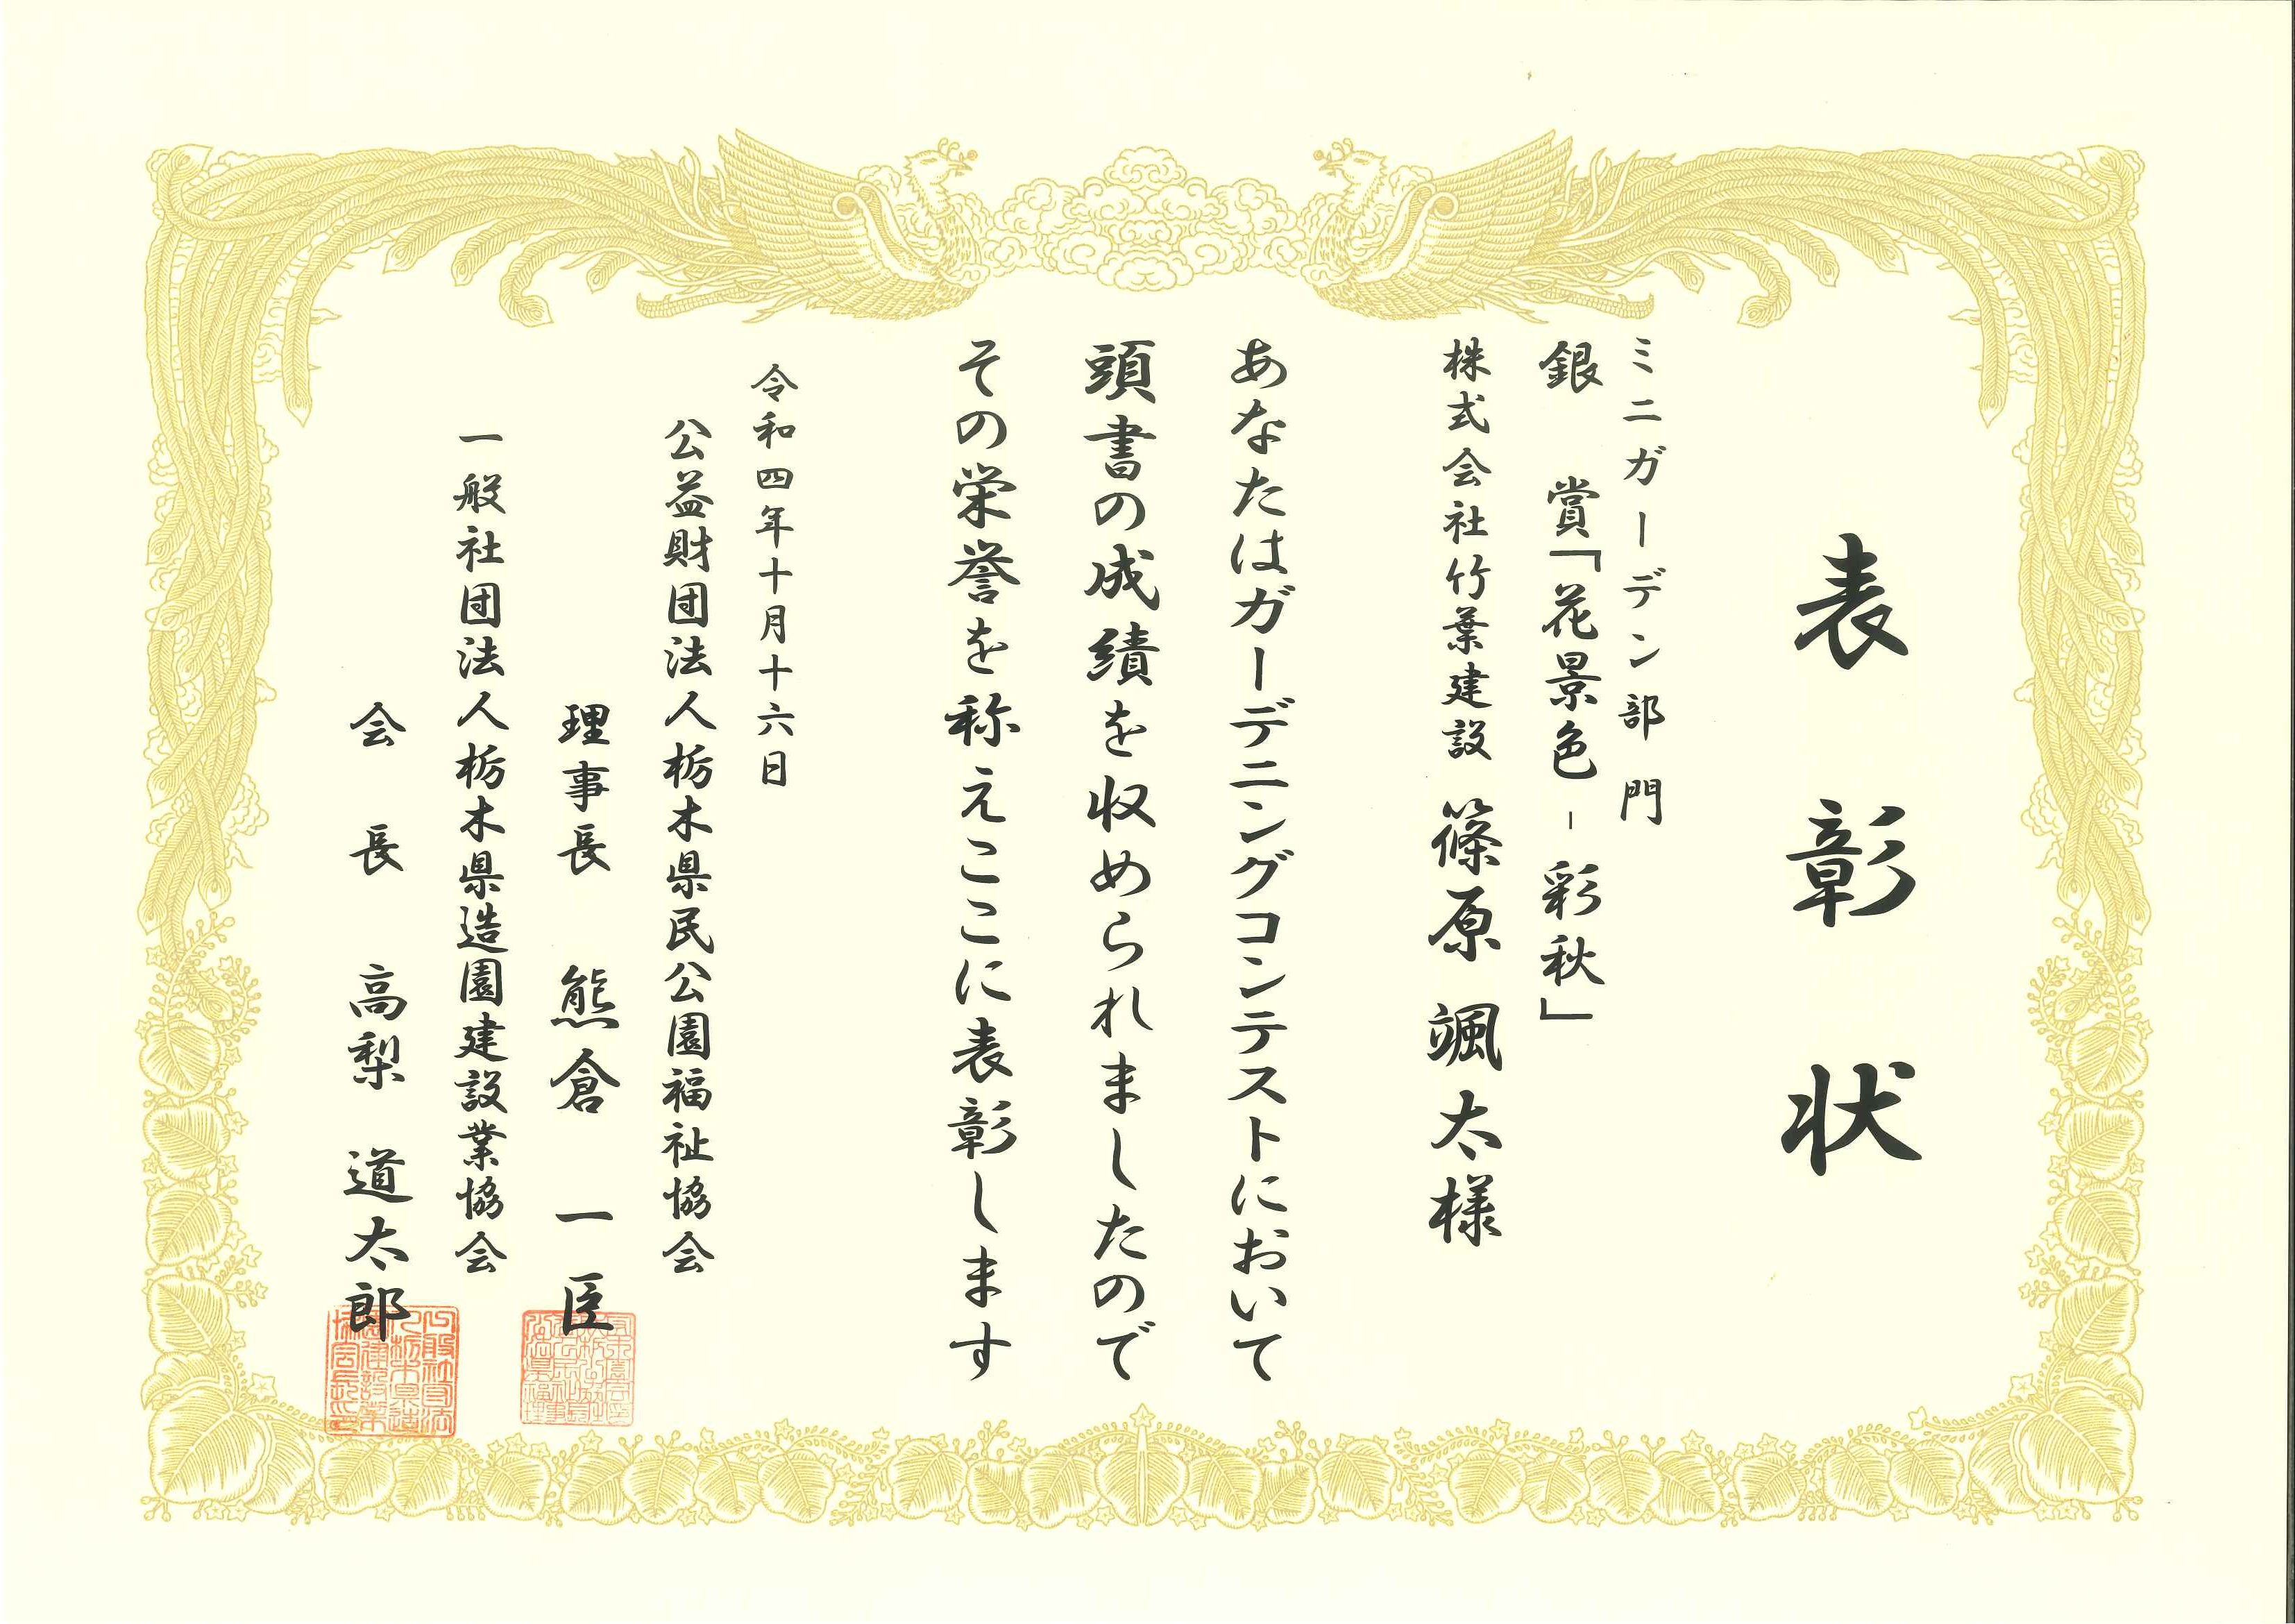 表彰状
ミニガーデン部門
銀　賞「花景色-彩秋」
株式会社竹葉建設 篠原 颯太様
あなたはガーデニングコンテストにおいて
頭書の成績を収められましたので
その栄誉を称えここに表彰します
令和四年十月十六日
公益財団法人栃木県民公園福祉協会
理事長　熊倉　一臣
一般社団法人栃木県造園建設業協会
会　長　高梨　道太郎